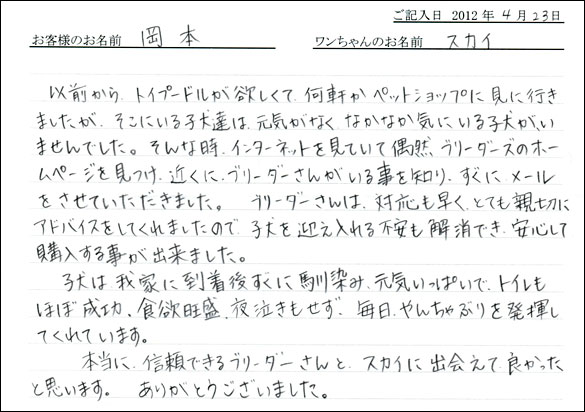 ご記入日 2012年4月23日
お客様のお名前 岡本 ワンちゃんのお名前 スカイ
以前から、トイプードルが欲しくて、何軒かペットショップに見に行き
ましたが、そこにいる子犬達は、元気がなく、なかなか気にいる子犬がい
ませんでした。そんな時、インターネットを見ていて偶然、ブリーダーズのホー
ムページを見つけ、近くに、ブリーダーさんがいる事を知り、すぐにメール
をさせていただきました。 ブリーダーさんは、対応も早く、とても親切に
アドバイスをしてくれましたので、子犬を迎え入れる不安も解消でき、安心して
購入する事が出来ました。
子犬は我家に到着後すぐに馴染み、元気いっぱいで、トイレも
ほぼ成功、食欲旺盛、夜泣きもせず、毎日、やんちゃぶりを発揮し
てくれています。
本当に、信頼できるブリーダーさんと、スカイに出会えて良かった
と思います。 ありがとうございました。